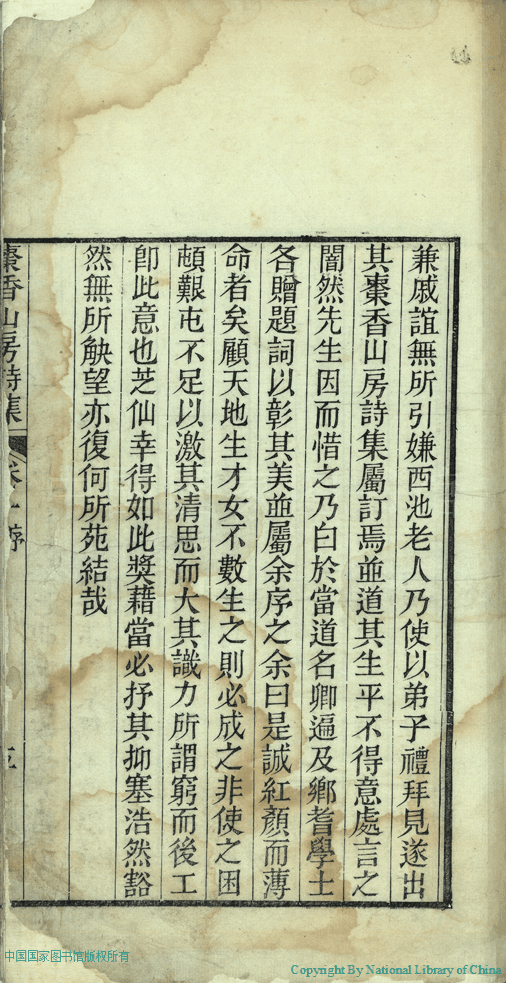 兼戚誼無所引嫌西池老人乃使以弟子禮拜見遂出
其棗香山房詩集屬訂焉並道其生平不得意處言之
闇然先生因而惜之乃白於當道名卿遍及鄉耆學士
各贈題詞以彰其美並屬余序之余曰是誠紅顏而薄
命者矣顧天地生才女不數生之則必成之非使之困
頓艱屯不足以激其清思而大其識力所謂窮而後工
卽此意也芝仙幸得如此獎藉當必抒其抑塞浩然豁
然無所觖望亦復何所苑結哉
棗香山房詩集 卷 序
中国国家图书馆版权所有
Copyright By National Library of China